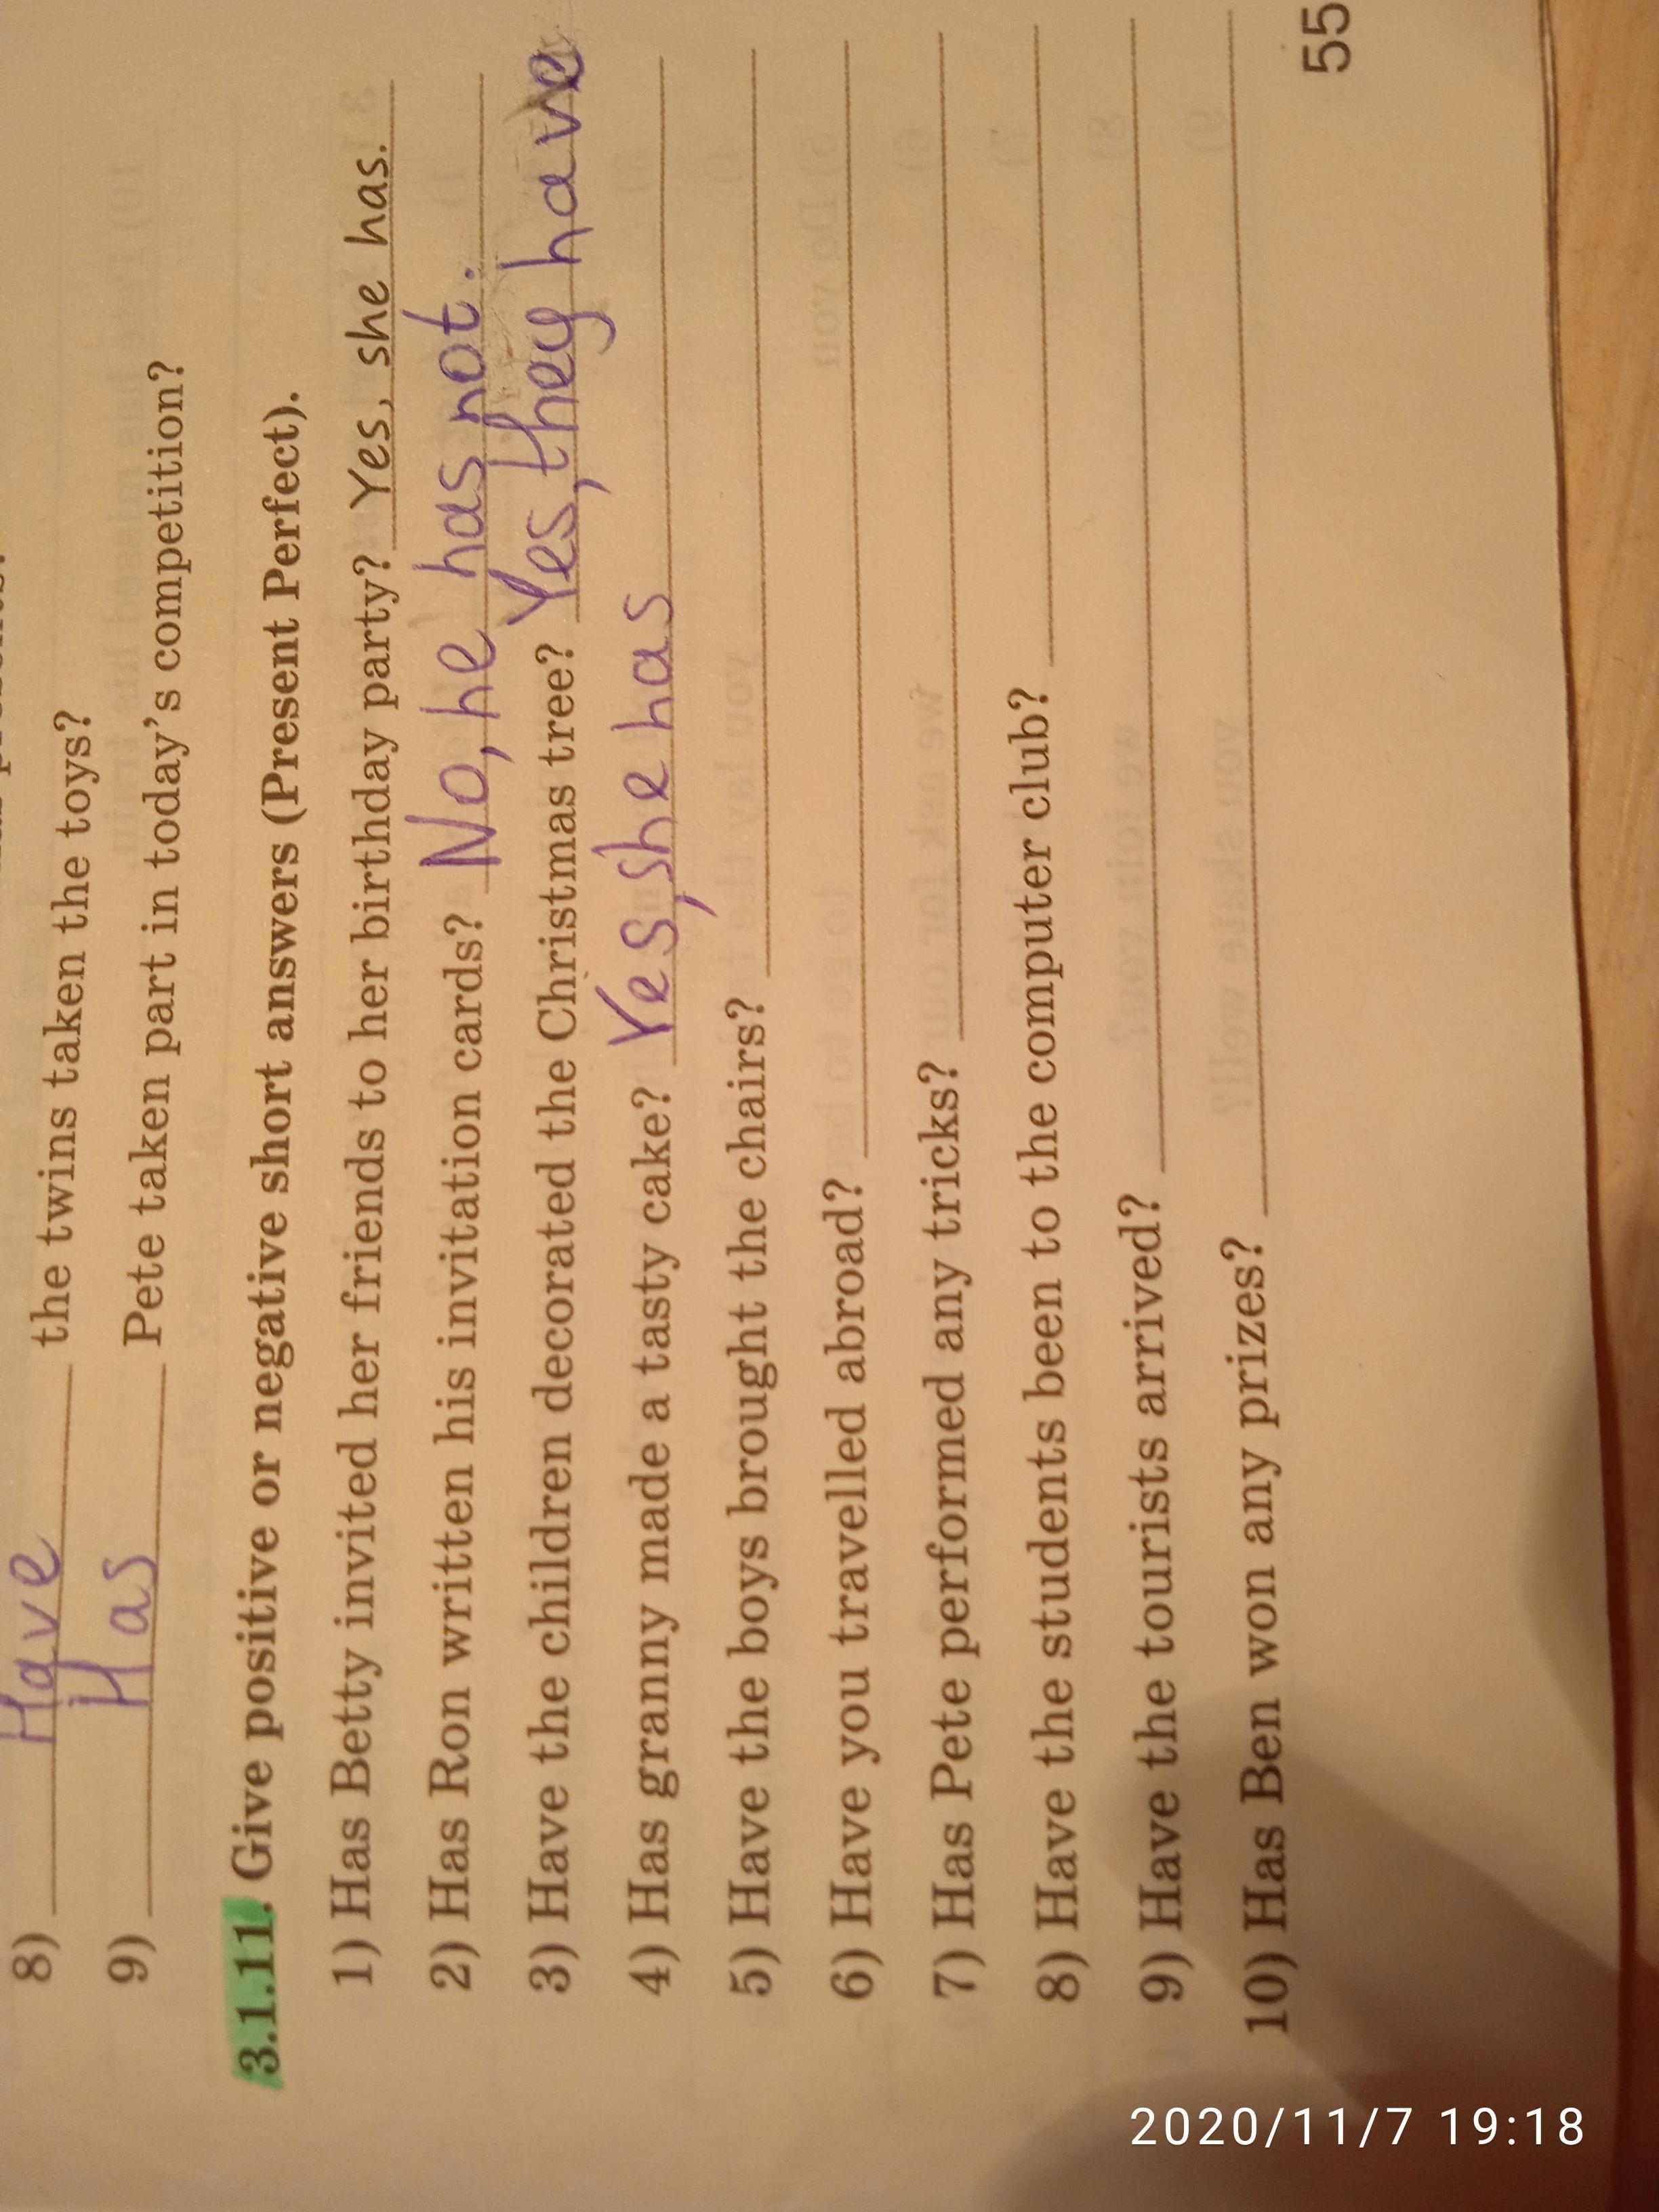 8) Have the twins taken the toys?
9) Has Pete taken part in today's competition?
3.1.11. Give positive or negative short answers (Present Perfect).
1) Has Betty invited her friends to her birthday party? Yes, she has.
2) Has Ron written his invitation cards? No, he has not.
3) Have the children decorated the Christmas tree? Yes, they have
4) Has granny made a tasty cake? Yes, she has
5) Have the boys brought the chairs?
6) Have you travelled abroad?
7) Has Pete performed any tricks?
8) Have the students been to the computer club?
9) Have the tourists arrived?
10) Has Ben won any prizes?
55
2020/11/7 19:18